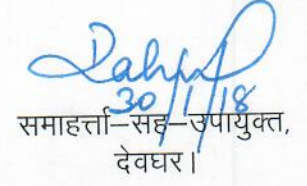 30/1/18
समाहर्त्ता–सह–उपायुक्त,
देवघर।